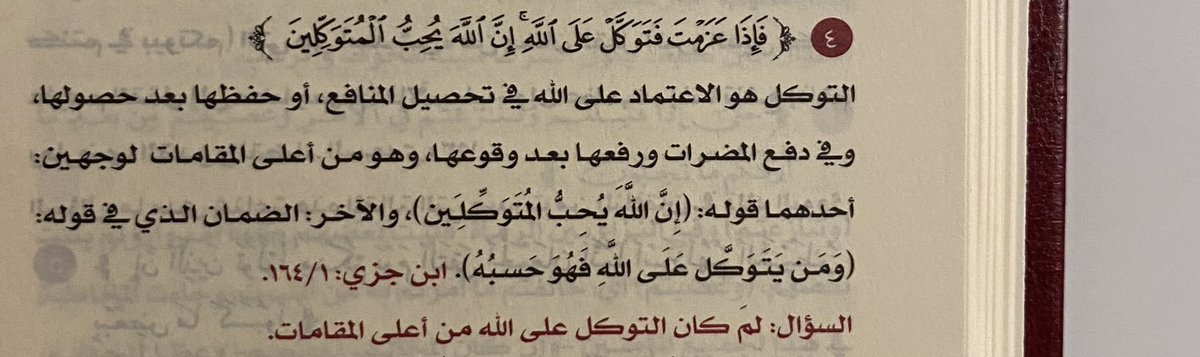 ٤ ﴿ فَإِذَا عَزَمْتَ فَتَوَكَّلْ عَلَى ٱللَّهِ ۚ إِنَّ ٱللَّهَ يُحِبُّ ٱلْمُتَوَكِّلِينَ ﴾
التوكل هو الاعتماد على الله في تحصيل المنافع، أو حفظها بعد حصولها،
وفي دفع المضرات ورفعها بعد وقوعها، وهو من أعلى المقامات لوجهين:
أحدهما قوله: (إِنَّ اللَّهَ يُحِبُّ المُتَوَكِّلِين)، والآخر: الضمان الذي في قوله:
(وَمَن يَتَوَكَّل عَلَى اللَّهِ فَهُوَ حَسبُهُ). ابن جزي: ١/ ١٦٤.
السؤال: لمَ كان التوكل على الله من أعلى المقامات.